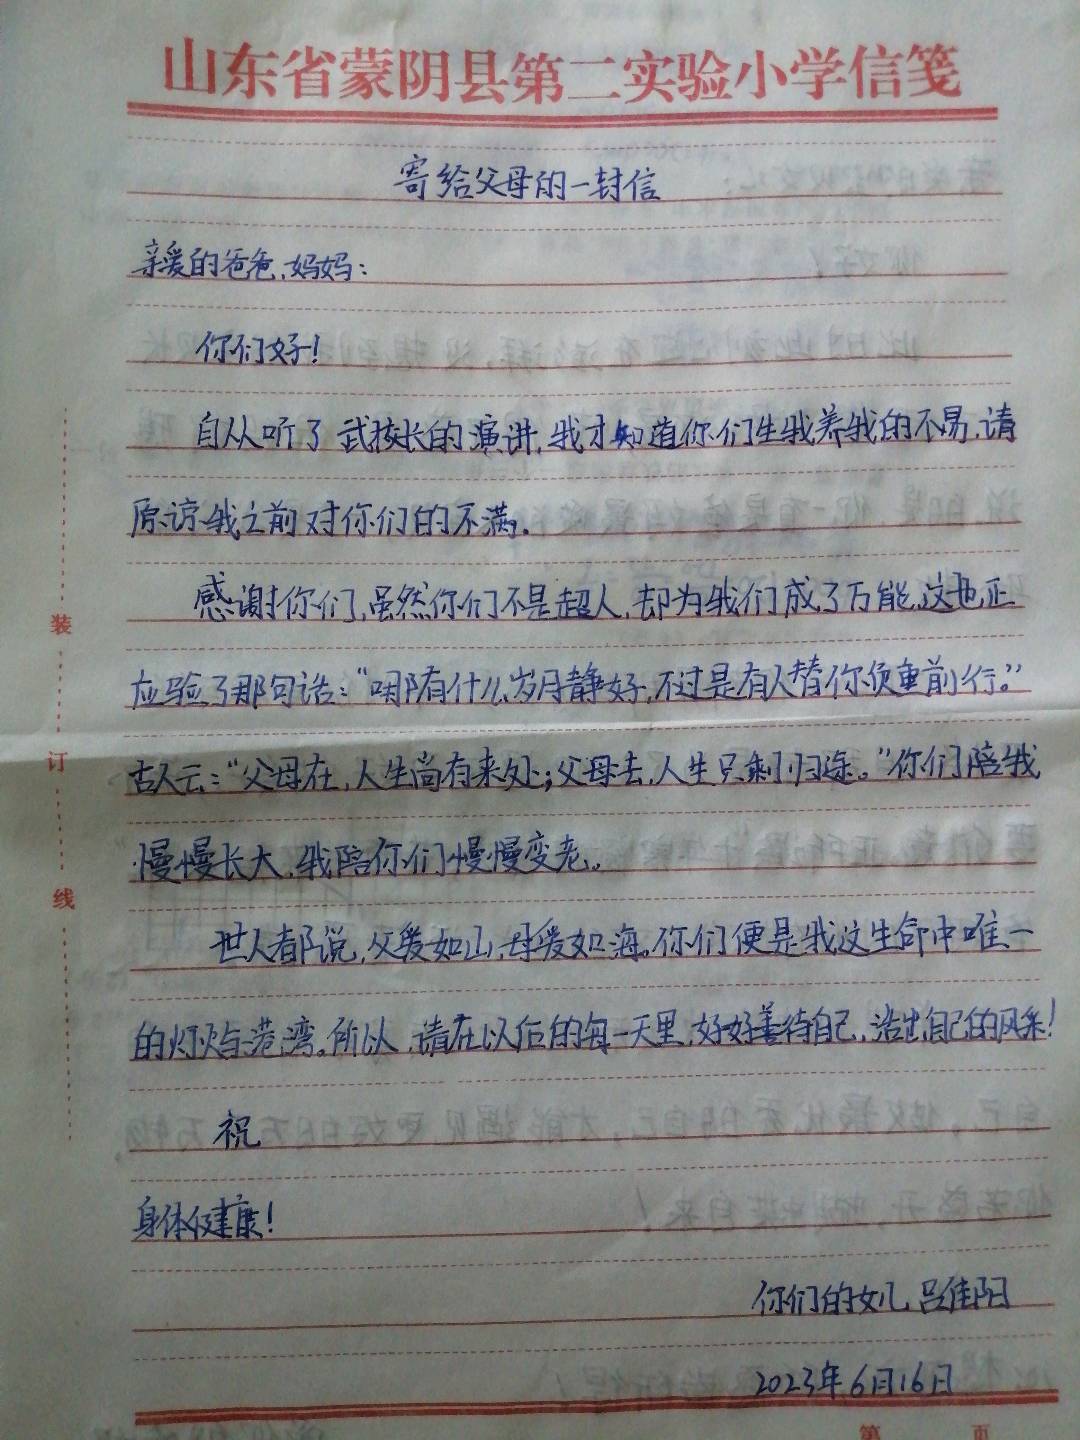 山东省蒙阴县第二实验小学信笺
寄给父母的一封信
亲爱的爸爸,妈妈:
你们好!
自从听了武校长的演讲,我才知道你们生我养我的不易,请
原谅我之前对你们的不满。
感谢你们,虽然你们不是超人,却为我们成了万能,这也正
应验了那句话:“哪有什么岁月静好,不过是有人替你负重前行。”
古人云:“父母在,人生尚有来处;父母去,人生只剩归途。”你们陪我
慢慢长大,我陪你们慢慢变老。
世人都说,父爱如山,母爱如海。你们便是我这生命中唯一
的灯火与港湾。所以,请在以后的每一天里,好好善待自己,活出自己的风采!
祝
身体健康!
你们的女儿 吕佳阳
2023年6月16日
装
订
线
第 页